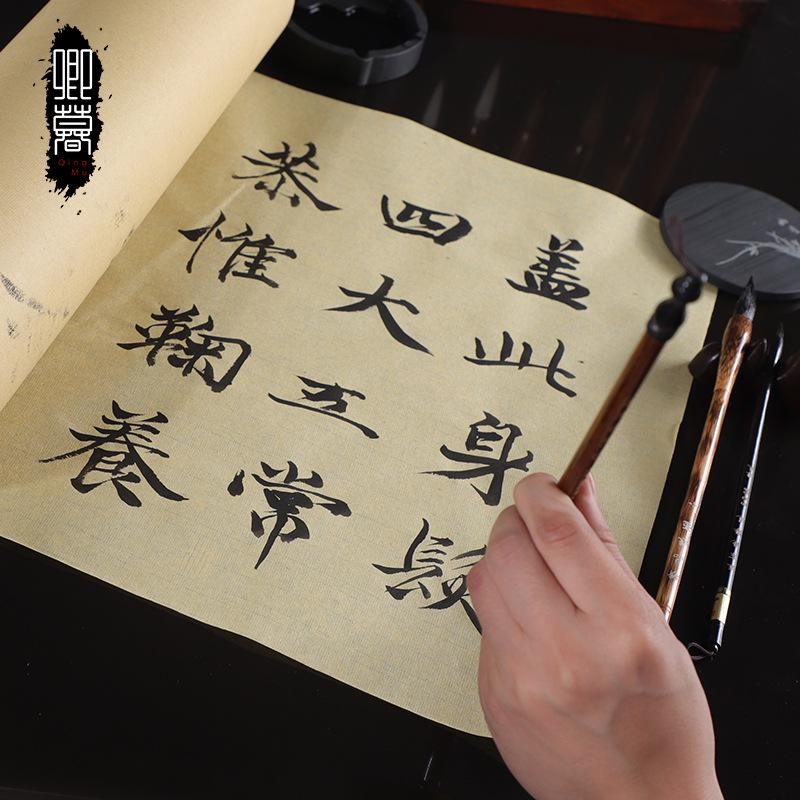 盖此身髮
四大五常
恭惟鞠養
卿暮
Qing
Mu